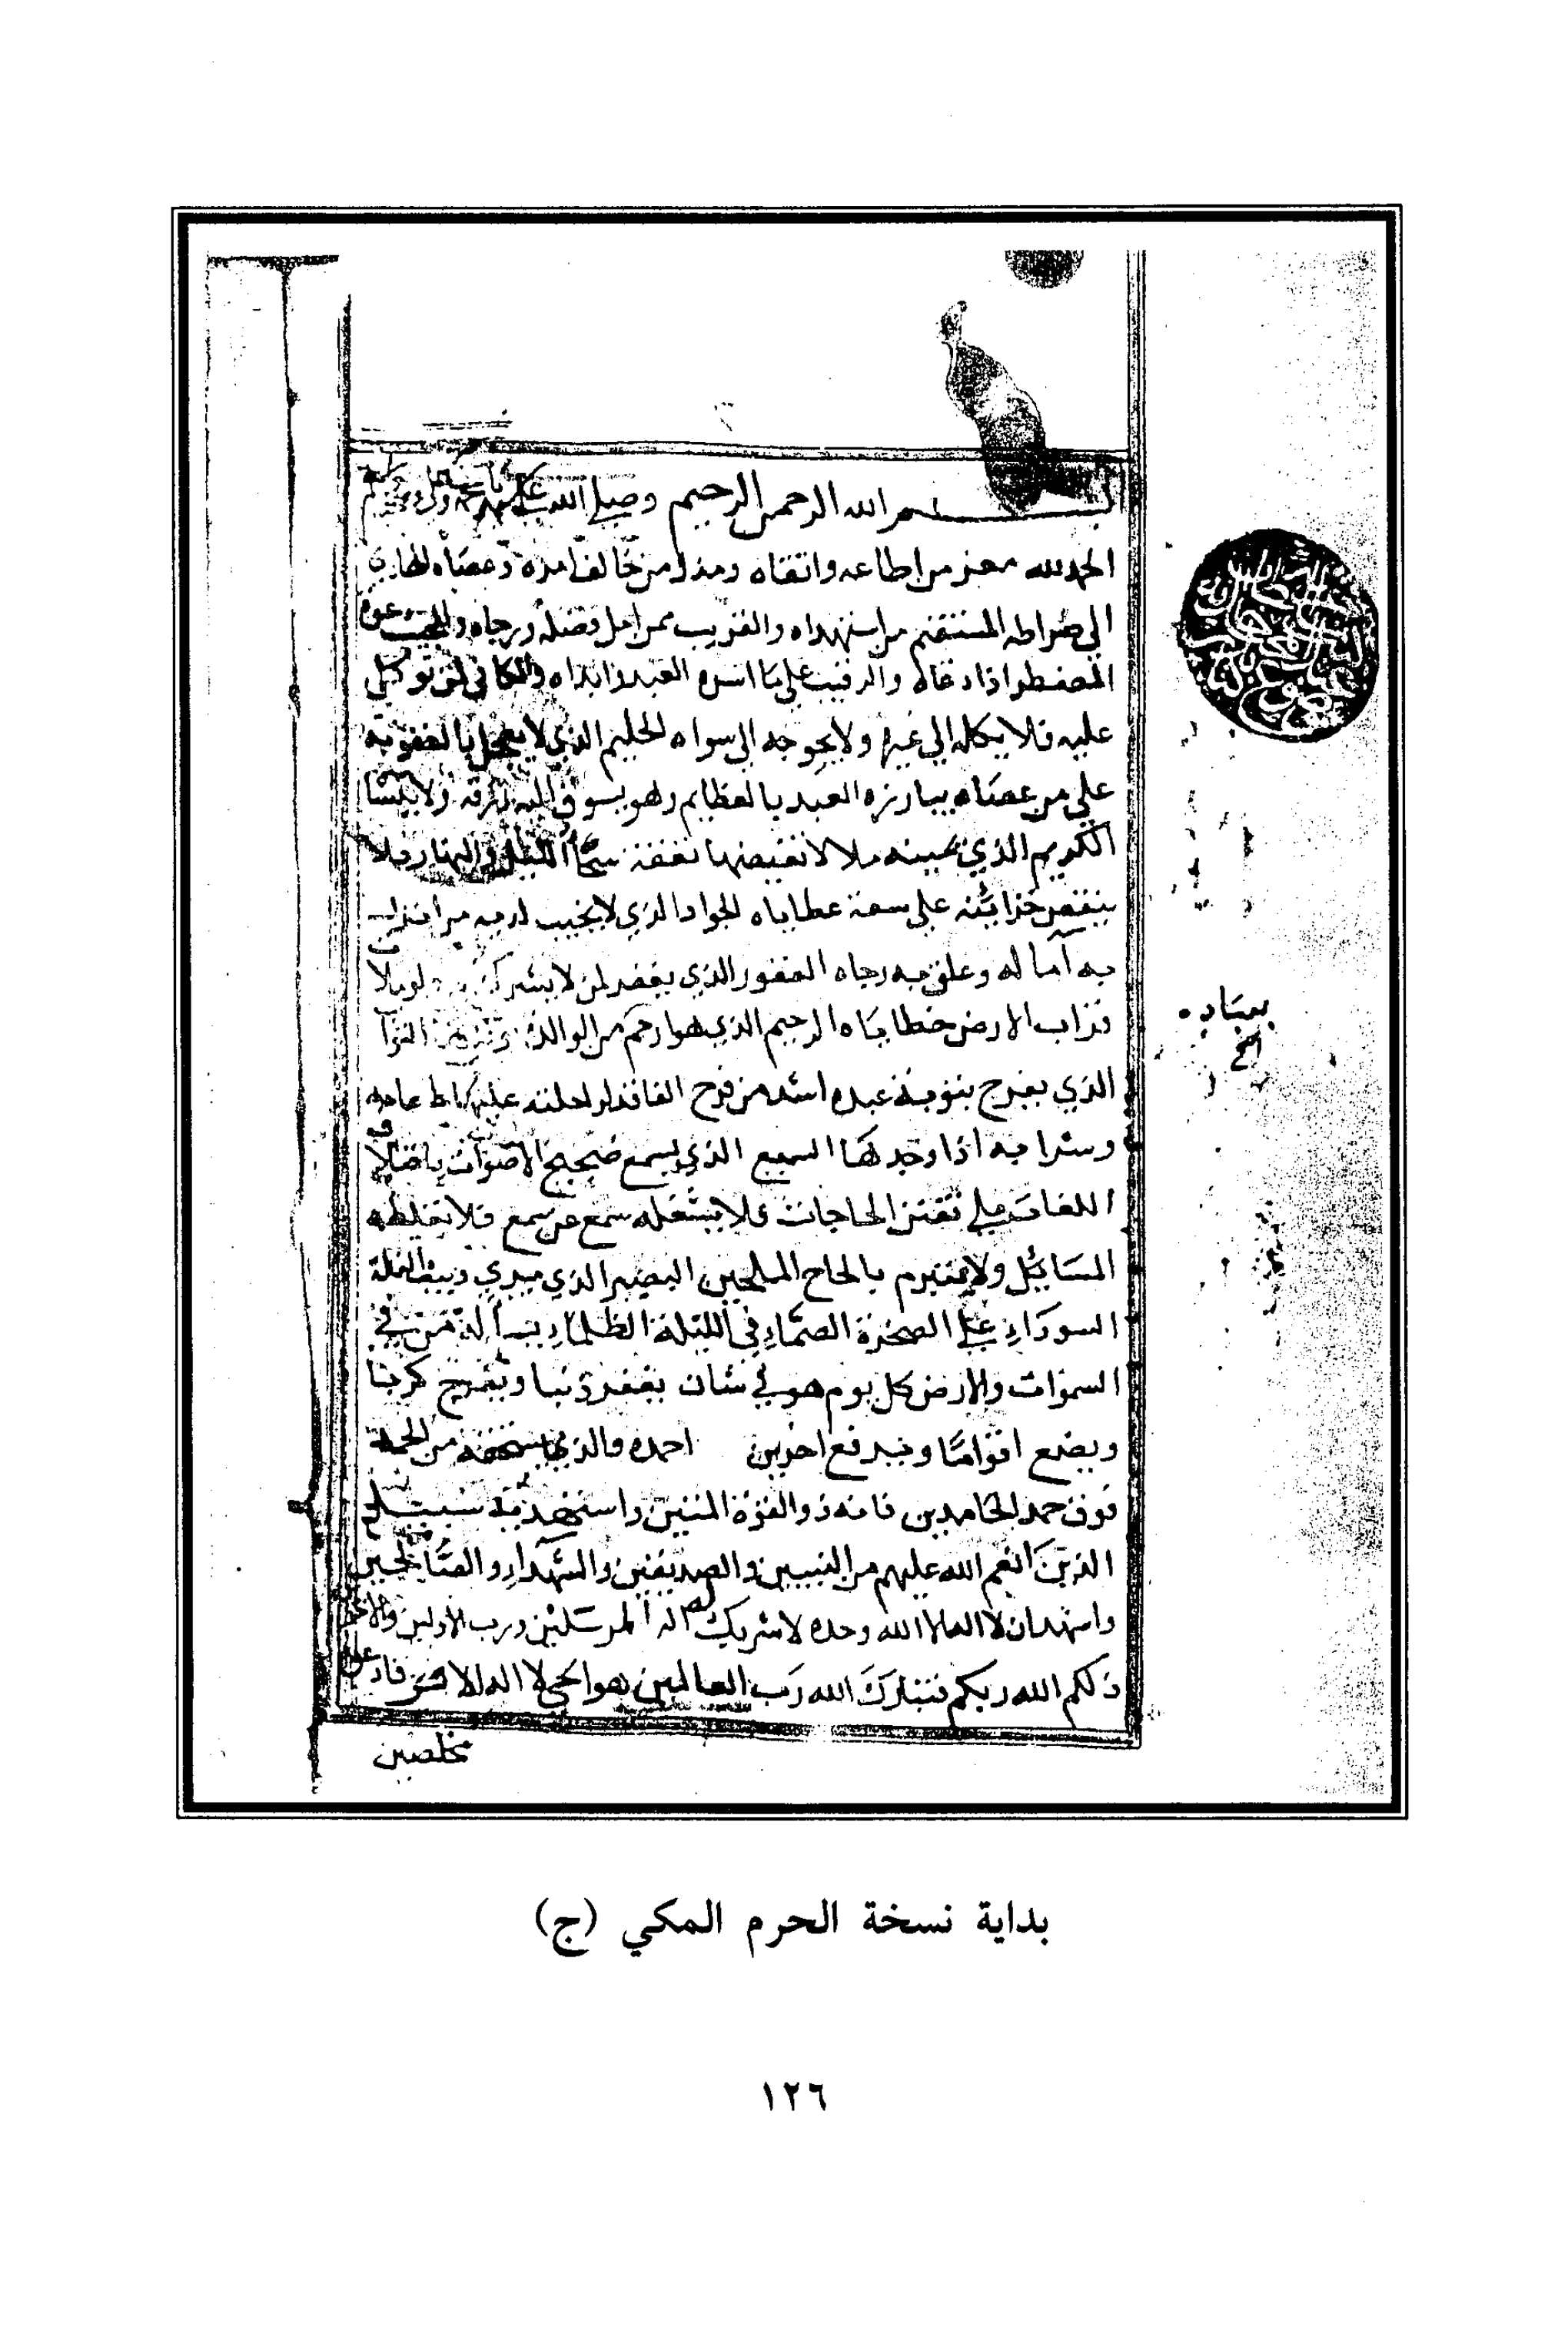 بسم الله الرحمن الرحيم وصلى الله على
الحمد لله معز من اطاعه واتقاه ومذل من خالف امره وعصاه الهادي
الي صراطه المستقيم من استهداه والقريب ممن امل فضله ورجاه والمجيب دعوة
المضطر اذا دعاه والرقيب على ما اسره العبد وابداه والكافي لمن توكل
عليه فلا يكله الى غيره ولا يحوجه الى سواه الحليم الذي لا يعجل بالعقوبة
على من عصاه يبارزه العبد بالعظايم وهو يسوق اليه رزقه ولا ينسا
الكريم الذي يمينه ملا لا تغيضها نفقة سحا الليل والنهار فلا
ينقص خزائنه على سعة عطاياه الجواد الذي لا يخيب لديه من انزلت
به آماله وعلق به رجاه الغفور الذي يغفر لمن لا يشرك به ولو ملات
تراب الارض خطاياه الرحيم الذي هو ارحم من الوالدة
الذي يفرح بتوبة عبده اشد من فرح الفاقد لراحلته عليها طعامه
وشرابه اذا وجدها السميع الذي يسمع ضجيج الاصوات باختلاف
اللغات على تفنن الحاجات فلا يشغله سمع عن سمع فلا تغلطه
المسائل ولا يتبرم بالحاح الملحين البصير الذي يرى دبيب النملة
السوداء على الصخرة الصماء في الليلة الظلماء يسأله من في
السموات والارض كل يوم هو في شان يغفر ذنبا ويفرج كربا
ويضع اقواما ويرفع اخرين احمده والذي يستحقه من الحمد
فوق حمد الحامدين فانه ذو القوة المتين واستهديه سبيل
الذين انعم الله عليهم من النبيين والصديقين والشهداء والصالحين
واشهد ان لا اله الا الله وحده لا شريك له اله المرسلين ورب الاولين والاخرين
ذلكم الله ربكم فتبارك الله رب العالمين هو الحي لا اله الا هو فادعوه
مخلصين
بداية نسخة الحرم المكي (ج)
١٢٦